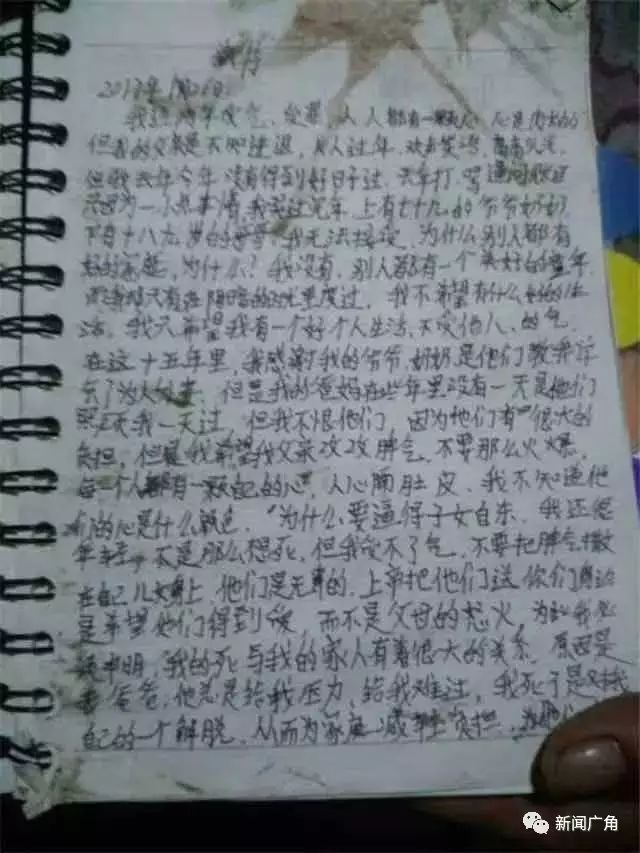 2017年1月20日
我这两年受气、受罪,人人都有一颗心,心是肉长的
但我的父亲是不知进退,别人过年,欢声笑语,高高兴兴。
但我去年今年没有得到好日子过,天天打骂
只因为一小点事情,我
下有十八九岁的哥哥,我无法接受,为什么别人都有
好的家庭,为什么?我没有,别人都有一个美好的童年
而我却只有在阴暗的世界度过,我不希望有什么好的生
活,我只希望我有一个好个人生活,不受他人、的气
在这十五年里,我感谢我的爷爷、奶奶是他们教我许
多了为人处事,但是我的爸妈在些年里没有一天是他们
陪我一天过,但我不恨他们,因为他们有很大的
负担,但是我希望我父亲改改脾气,不要那么火爆,
每一个人都有一颗自己的心,人心隔肚皮,我不知道他
们的心是什么颜色,为什么要逼得子女自杀,我还很
年轻,不是那么想死,但我受不了气,不要把脾气撒
在自己儿女身上,他们是无辜的,上帝把他们送你们身边
是希望他们得到爱,而不是父母的怒火,为此我
申明,我的死与我的家人有着很大的关系,原因是
爸爸,他总是给我压力,给我难过,我死于是对我
自己的一个解脱,从而为家庭减轻负担,
新闻广角